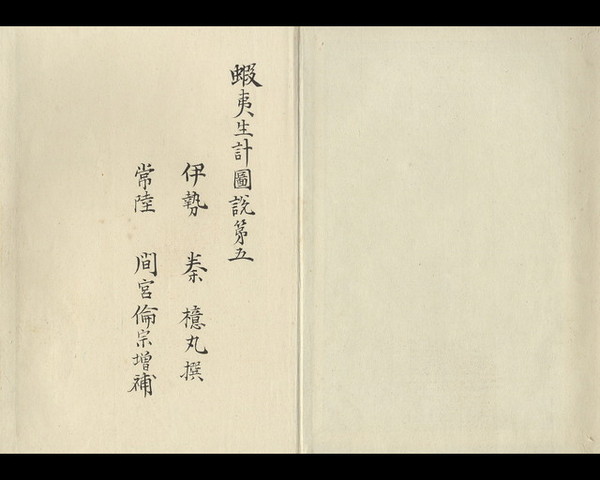 蝦夷生計圖説第五
伊勢 秦 檍丸 撰
常陸 間宮倫宗増補